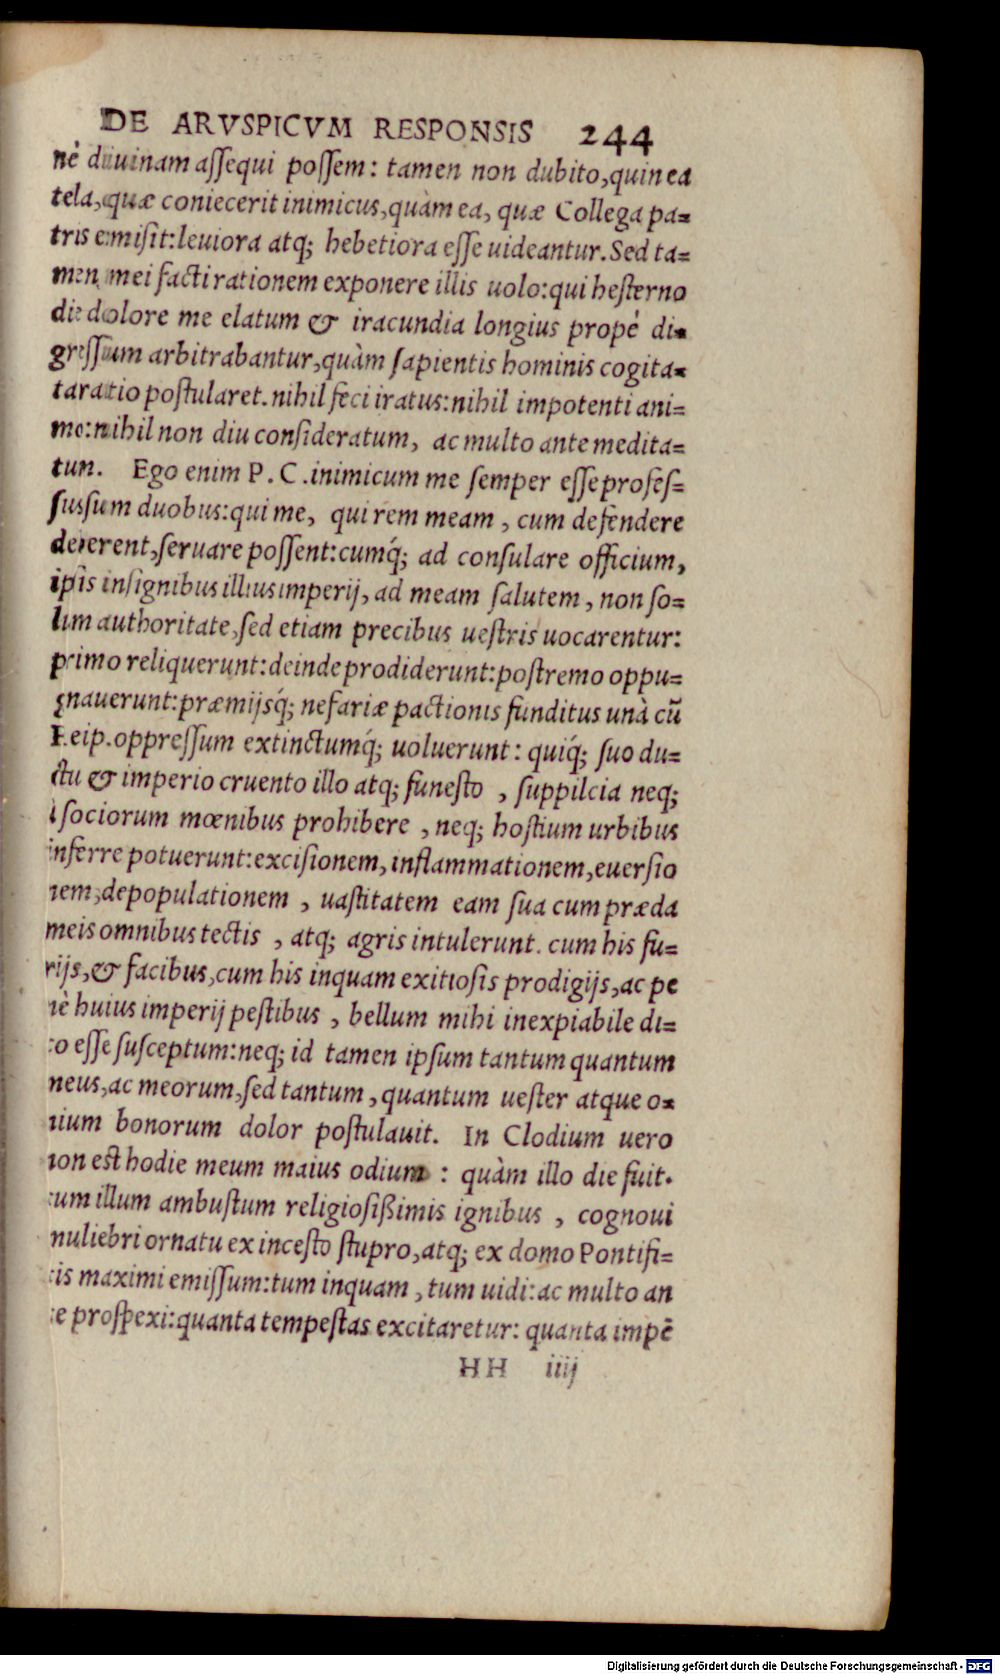 DE ARVSPICVM RESPONSIS 244
nè diuinam aſſequi poſſem: tamen non dubito, quin ea
tela, quæ coniecerit inimicus, quàm ea, quæ Collega pa=
tris emiſit: leuiora atq; hebetiora eſſe uideantur. Sed ta=
men mei facti rationem exponere illis uolo: qui heſterno
die dolore me elatum & iracundia longius propè di=
greſſum arbitrabantur, quàm ſapientis hominis cogita=
ta ratio poſtularet. nihil feci iratus: nihil impotenti ani=
mo: nihil non diu conſideratum, ac multo ante medita=
tum. Ego enim P. C. inimicum me ſemper eſſe profeſ=
ſus ſum duobus: qui me, qui rem meam, cum defendere
deberent, ſeruare poſſent: cumq́; ad conſulare officium,
ipſis inſignibus illius imperij, ad meam ſalutem, non ſo=
lum authoritate, ſed etiam precibus ueſtris uocarentur:
primo reliquerunt: deinde prodiderunt: poſtremo oppu=
gnauerunt: præmijsq́; nefariæ pactionis funditus unà cū
Reip. oppreſſum extinctumq́; uoluerunt: quiq́; ſuo du=
ctu & imperio cruento illo atq; funeſto, ſuppilcia neq;
à ſociorum mœnibus prohibere, neq; hoſtium urbibus
inferre potuerunt: exciſionem, inflammationem, euerſio
nem, depopulationem, uaſtitatem eam ſua cum præda
meis omnibus tectis, atq; agris intulerunt. cum his fu=
rijs, & facibus, cum his inquam exitioſis prodigijs, ac pe
nè huius imperij peſtibus, bellum mihi inexpiabile di=
co eſſe ſuſceptum: neq; id tamen ipſum tantum quantum
meus, ac meorum, ſed tantum, quantum ueſter atque o=
nium bonorum dolor poſtulauit. In Clodium uero
non est hodie meum maius odium: quàm illo die fuit.
cum illum ambuſtum religioſißimis ignibus, cognoui
muliebri ornatu ex inceſto ſtupro, atq; ex domo Pontifi=
cis maximi emiſſum: tum inquam, tum uidi: ac multo an
te proſpexi: quanta tempeſtas excitaretur: quanta impē
HH iiij
Digitalisierung gefördert durch die Deutsche Forschungsgemeinschaft - DFG